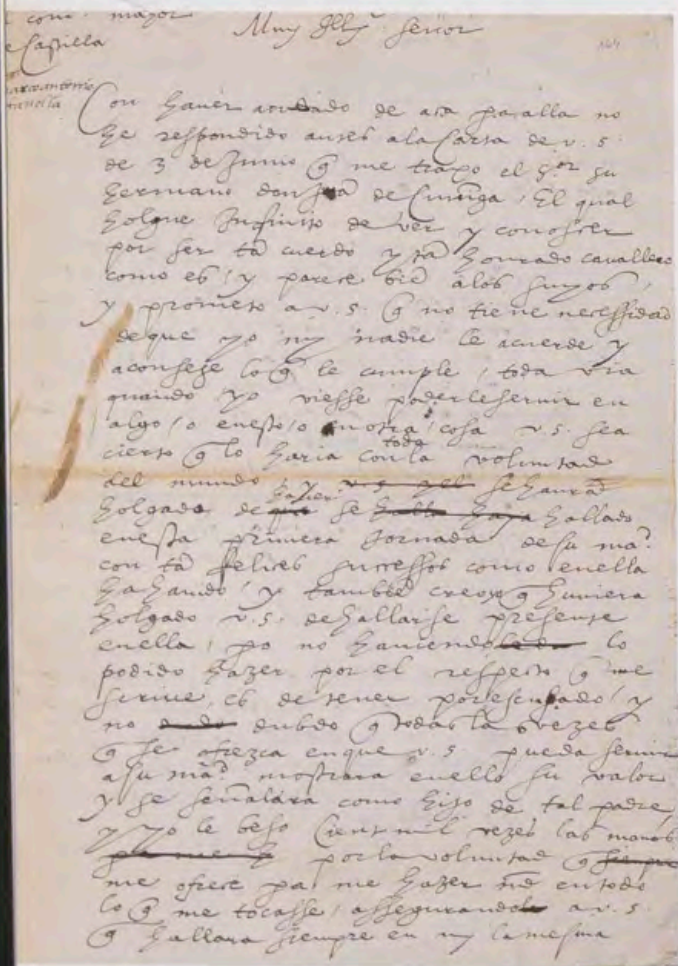 al com.or mayor
de Castilla
Marcoantonio
Muy Ill.e señor
144
Con haver andado de aca pa. alla no
he respondido antes a la Carta de v. s.
de 3 de Junio q̃ me traxo el s.or su
hermano don Juā de Cuniga / El qual
holgue Infinito de ver y conoscer
por ser tā cuerdo y tā honrado cavallero
como es / y parece biē a los suyos /
y prometo a v. s. q̃ no tiene necessidad
de que yo ny nadie le acuerde y
aconseje lo q̃ le cumple / toda via
quando yo viesse poderle servir en
algo / o en esto / o en otra cosa v. s. sea
cierto q̃ lo haria con toda la voluntad
del mundo / y v. s. se havrā
holgado de haver se halla haya hallado
en esta primera Jornada de su ma.d
con tā felices successos como en ella
ha havido / y tambiē creo yo q̃ huviera
holgado v. s. de hallarse presente
en ella / po no haviendo lo
podido hazer por el respecto q̃ me
scrive, es de tener por escusado / y
no dudo dubdo q̃ todas las vezes
q̃ se ofrezca en que v. s. pueda servir
a su ma.d mostrara en ello su valor
y se señalara como hijo de tal padre,
y yo le beso Cient mil vezes las manos
por la voluntad q̃ siempre
me ofrece pa. me hazer md̃ en todo
lo q̃ me tocasse / assegurando a v. s.
q̃ hallara siempre en my la mesma